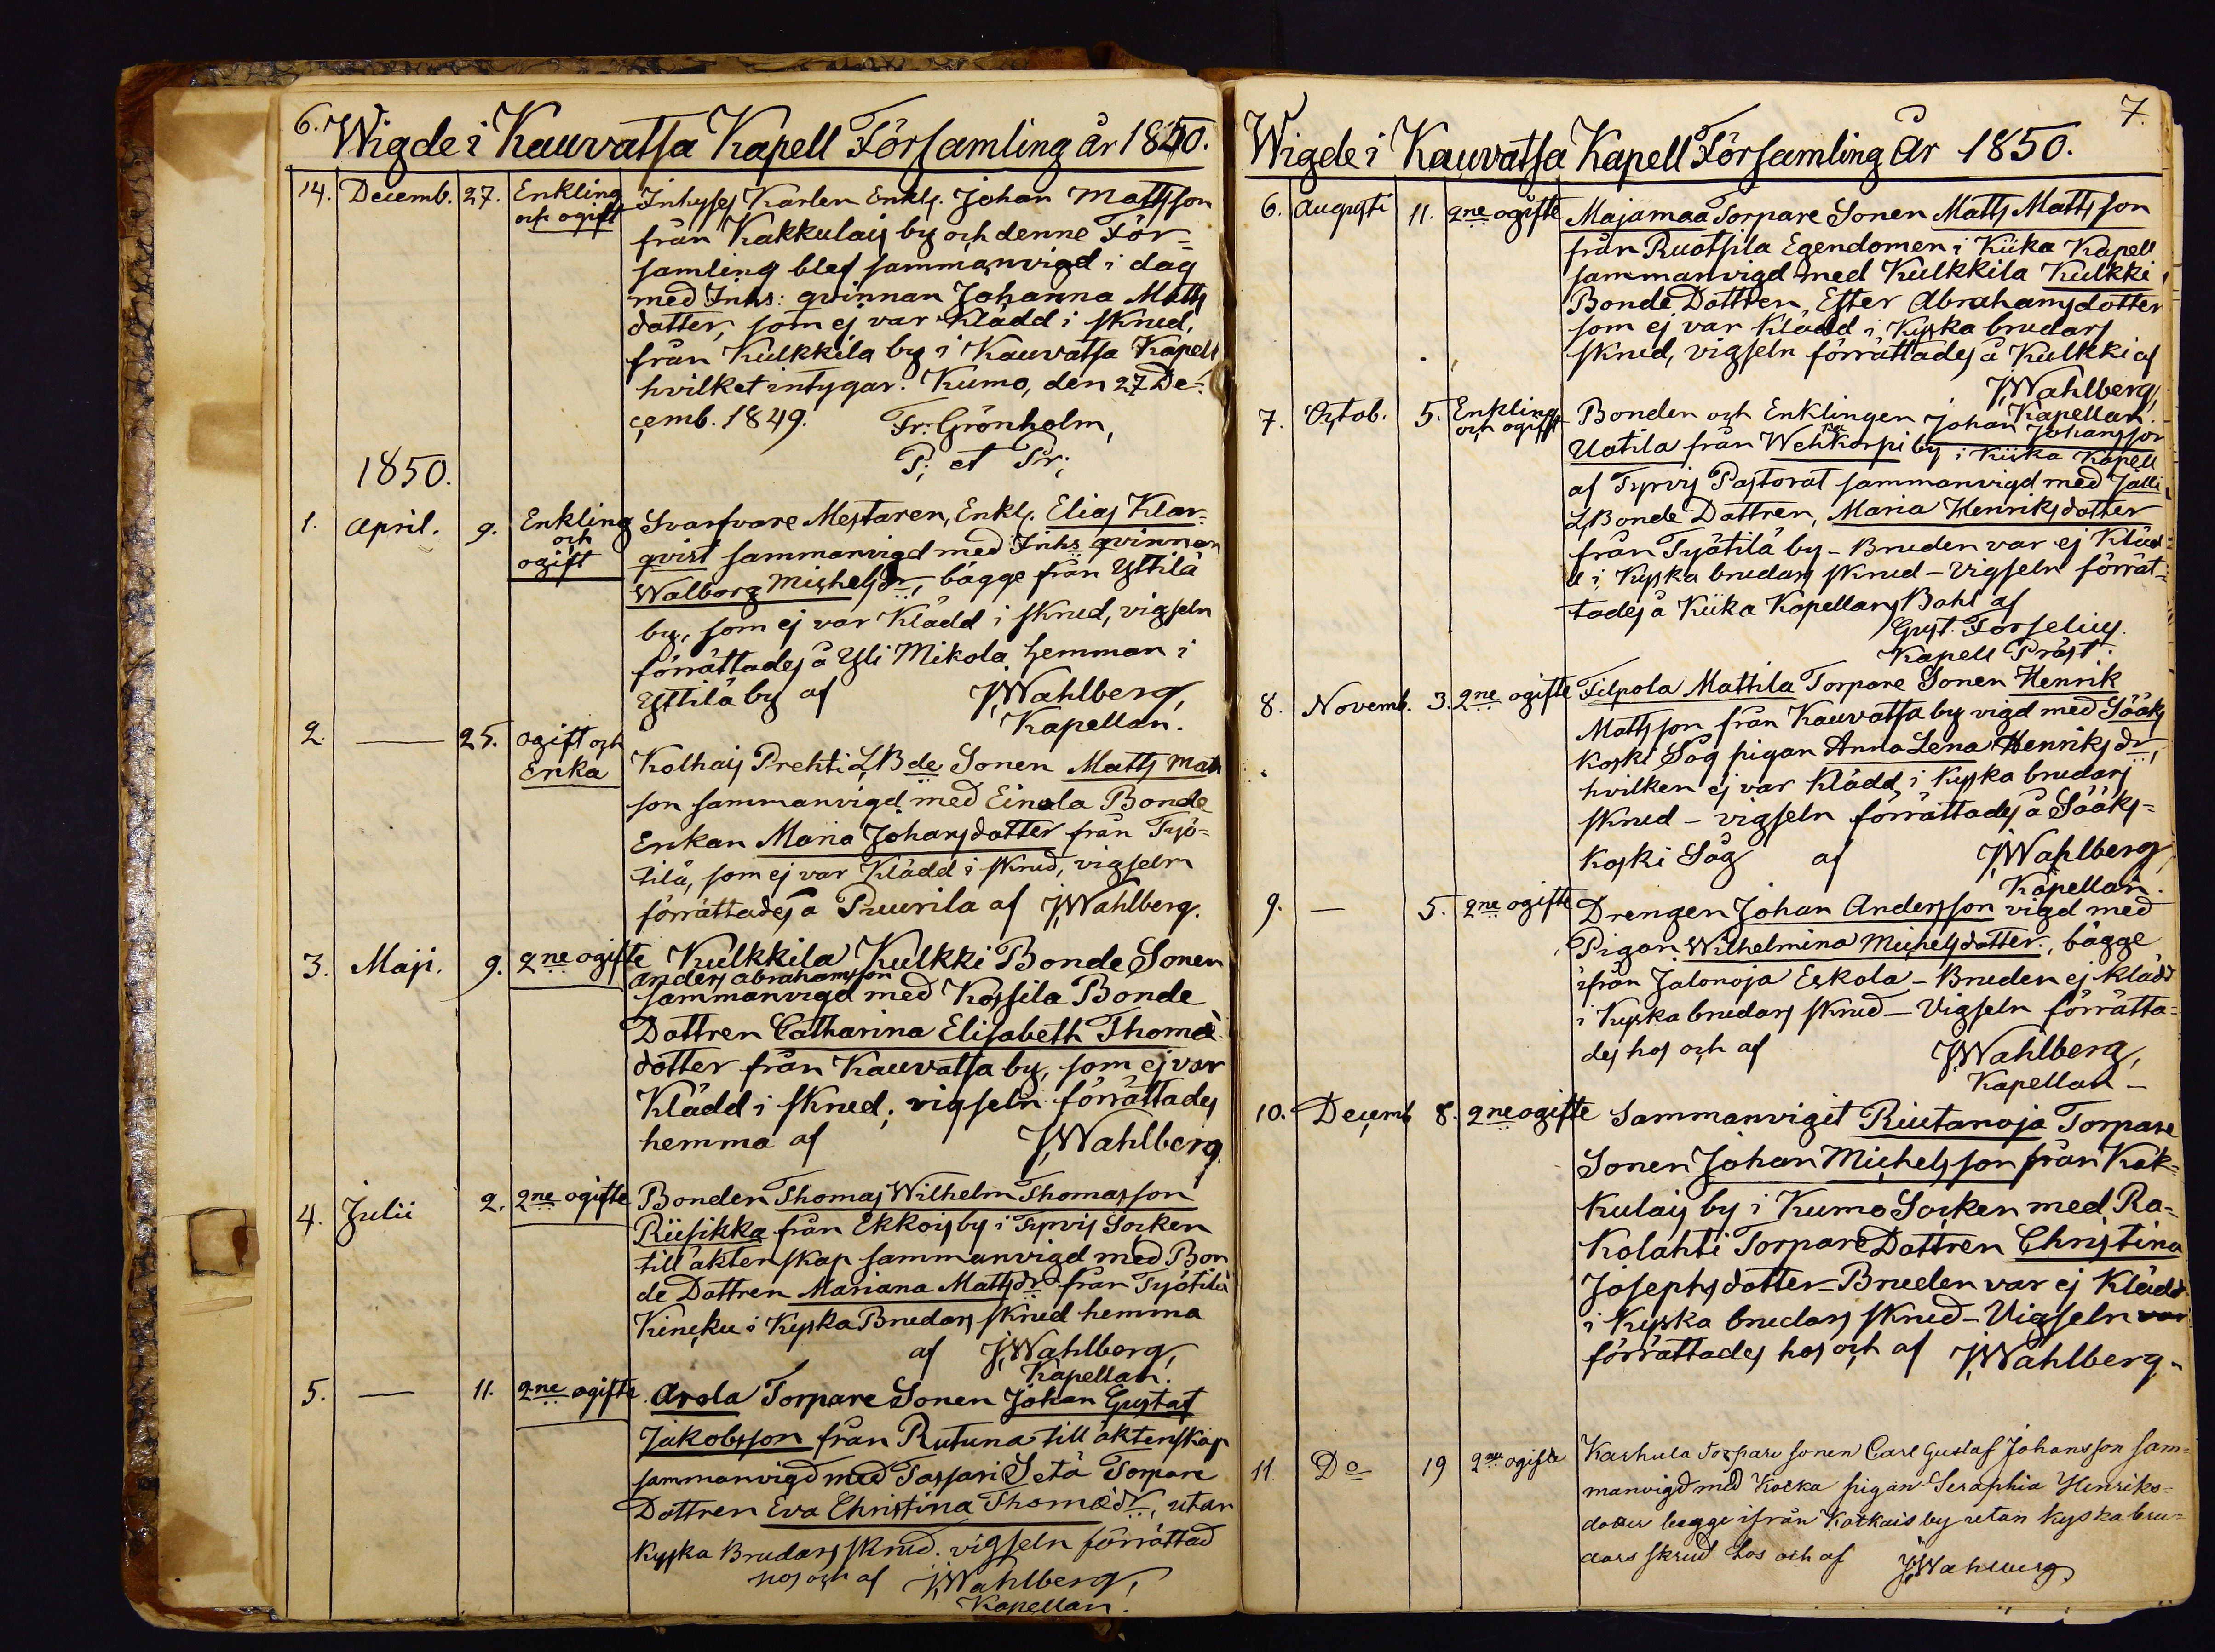 6. Wigde i Kauvatsa Kapell Församling år 1850.
14. Decemb. 27. Enkling och ogift
Inhyses Karlen Enkl. Johan Mattsson
från Kakkulais by och denne För-
samling blef sammanvigd i dag
med Inhs: qvinnan Johanna Matts
dotter, som ej var Klädd i skrud,
från Kulkkila by i Kauvatsa Kapell
hvilket intygar. Kumo, den 27 De-
cemb. 1849. Fr. Grönholm,
P. et Pr.
1850.
1. April. 9. Enkling och ogift
Svarfvare Mestaren, Enkl. Elias Klar-
qvist sammanvigd med Inhs qvinnan
Walborg Michelsdr, bägge från Yttilä
by, som ej var Klädd i skrud, vigseln
förrättades å Yli Mikola hemman i
Yttilä by af J. Wahlberg,
Kapellan.
2. — 25. ogift och Enka
Kolhais Prehti LBde Sonen Matts Matts
son sammanvigd med Einola Bonde
Enkan Maria Johansdotter från Työ-
tilä, som ej var Klädd i skrud, vigseln
förrättades å Puurila af J. Wahlberg.
3. Maji. 9. 2ne ogifte
Kulkkila Kulkki Bonde Sonen
Anders Abrahamsson
sammanvigd med Kossila Bonde
Dottren Catharina Elisabeth Thomæ
dotter från Kauvatsa by, som ej var
Klädd i skrud; vigseln förrättades
hemma af J. Wahlberg.
4. Julii 2. 2ne ogifte
Bonden Thomas Wilhelm Thomasson
Riisikka från Ekkois by i Tyrvis Socken
till äktenskap sammanvigd med Bon
de Dottren Mariana Mattsdr från Työtilä
Kincku i Kyska Brudars skrud hemma
af J. Wahlberg,
Kapellan.
5. — 11. 2ne ogifte
Arola Torpare Sonen Johan Gustaf
Jakobsson från Rutuna till äktenskap
sammanvigd med Tassari Setä Torpare
Dottren Eva Christina Thomædr, utan
Kyska Brudars skrud. vigseln förrättad
hos och af J. Wahlberg,
Kapellan.
7.
Wigde i Kauvatsa Kapell Församling År 1850.
6. Augusti 11. 2ne ogifte
Majamaa Torpare Sonen Matts Mattsson
från Ruotsila Egendomen i Kiika Kapell
sammanvigd med Kulkkila Kulkki
Bonde Dottren, Ester Abrahamsdotter
som ej var Klädd i Kyska brudars
skrud, vigseln förrättades å Kulkki af
J. Wahlberg,
Kapellan.
7. Octob. 5. Enkling och ogift
Bonden och Enklingen Johan Johansson
Uotila från Wehkakorpi by i Kiika Kapell
af Tyrvis Pastorat sammanvigd med Jalli
LBonde Dottren, Maria Henriksdotter
från Työtilä by – Bruden var ej Kläd
d i Kyska brudars skrud – Vigseln förrät-
tades å Kiika Kapellans Bohl af
Gust. Forselius.
Kapell Präst.
8. Novemb. 3. 2ne ogifte
Filpola Mattila Torpare Sonen Henrik
Mattsson från Kauvatsa by vigd med Sääks
Koski Såg pigan Anna Lena Henriksdr,
hvilken ej var Klädd i Kyska brudars
skrud – vigseln förrättades å Sääks-
Koski Såg af J. Wahlberg,
Kapellan.
9. — 5. 2ne ogifte
Drengen Johan Andersson vigd med
Pigan Wilhelmina Michelsdotter, bägge
ifrån Jalonoja Eskola – Bruden ej klädd
i Kyska brudars skrud – Vigseln förrätta-
des hos och af J. Wahlberg,
Kapellan –
10. Decemb 8. 2ne ogifte
Sammanvigit Riutanoja Torpare
Sonen Johan Michelsson från Kak-
kulais by i Kumo Socken med Ra-
kolahti Torpare Dottren Christina
Josephsdotter – Bruden var ej Klädd
i Kyska brudars skrud – Vigseln var
förrättades hos och af J. Wahlberg.
11. Do 19 2ne ogifte
Karhula Torpare sonen Carl Gustaf Johansson sam-
manvigd med Kocka pigan Seraphia Henriks-
dotter begge ifrån Kockais by utan kyska bru-
dars skrud hos och af J. Wahlberg